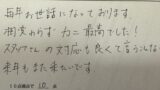 毎年お世話になっております。
相変わらず カニ 最高でした!
スタッフさんの対応も良くて言うことない
来年もまた来たいです。
10点満点で 10 点